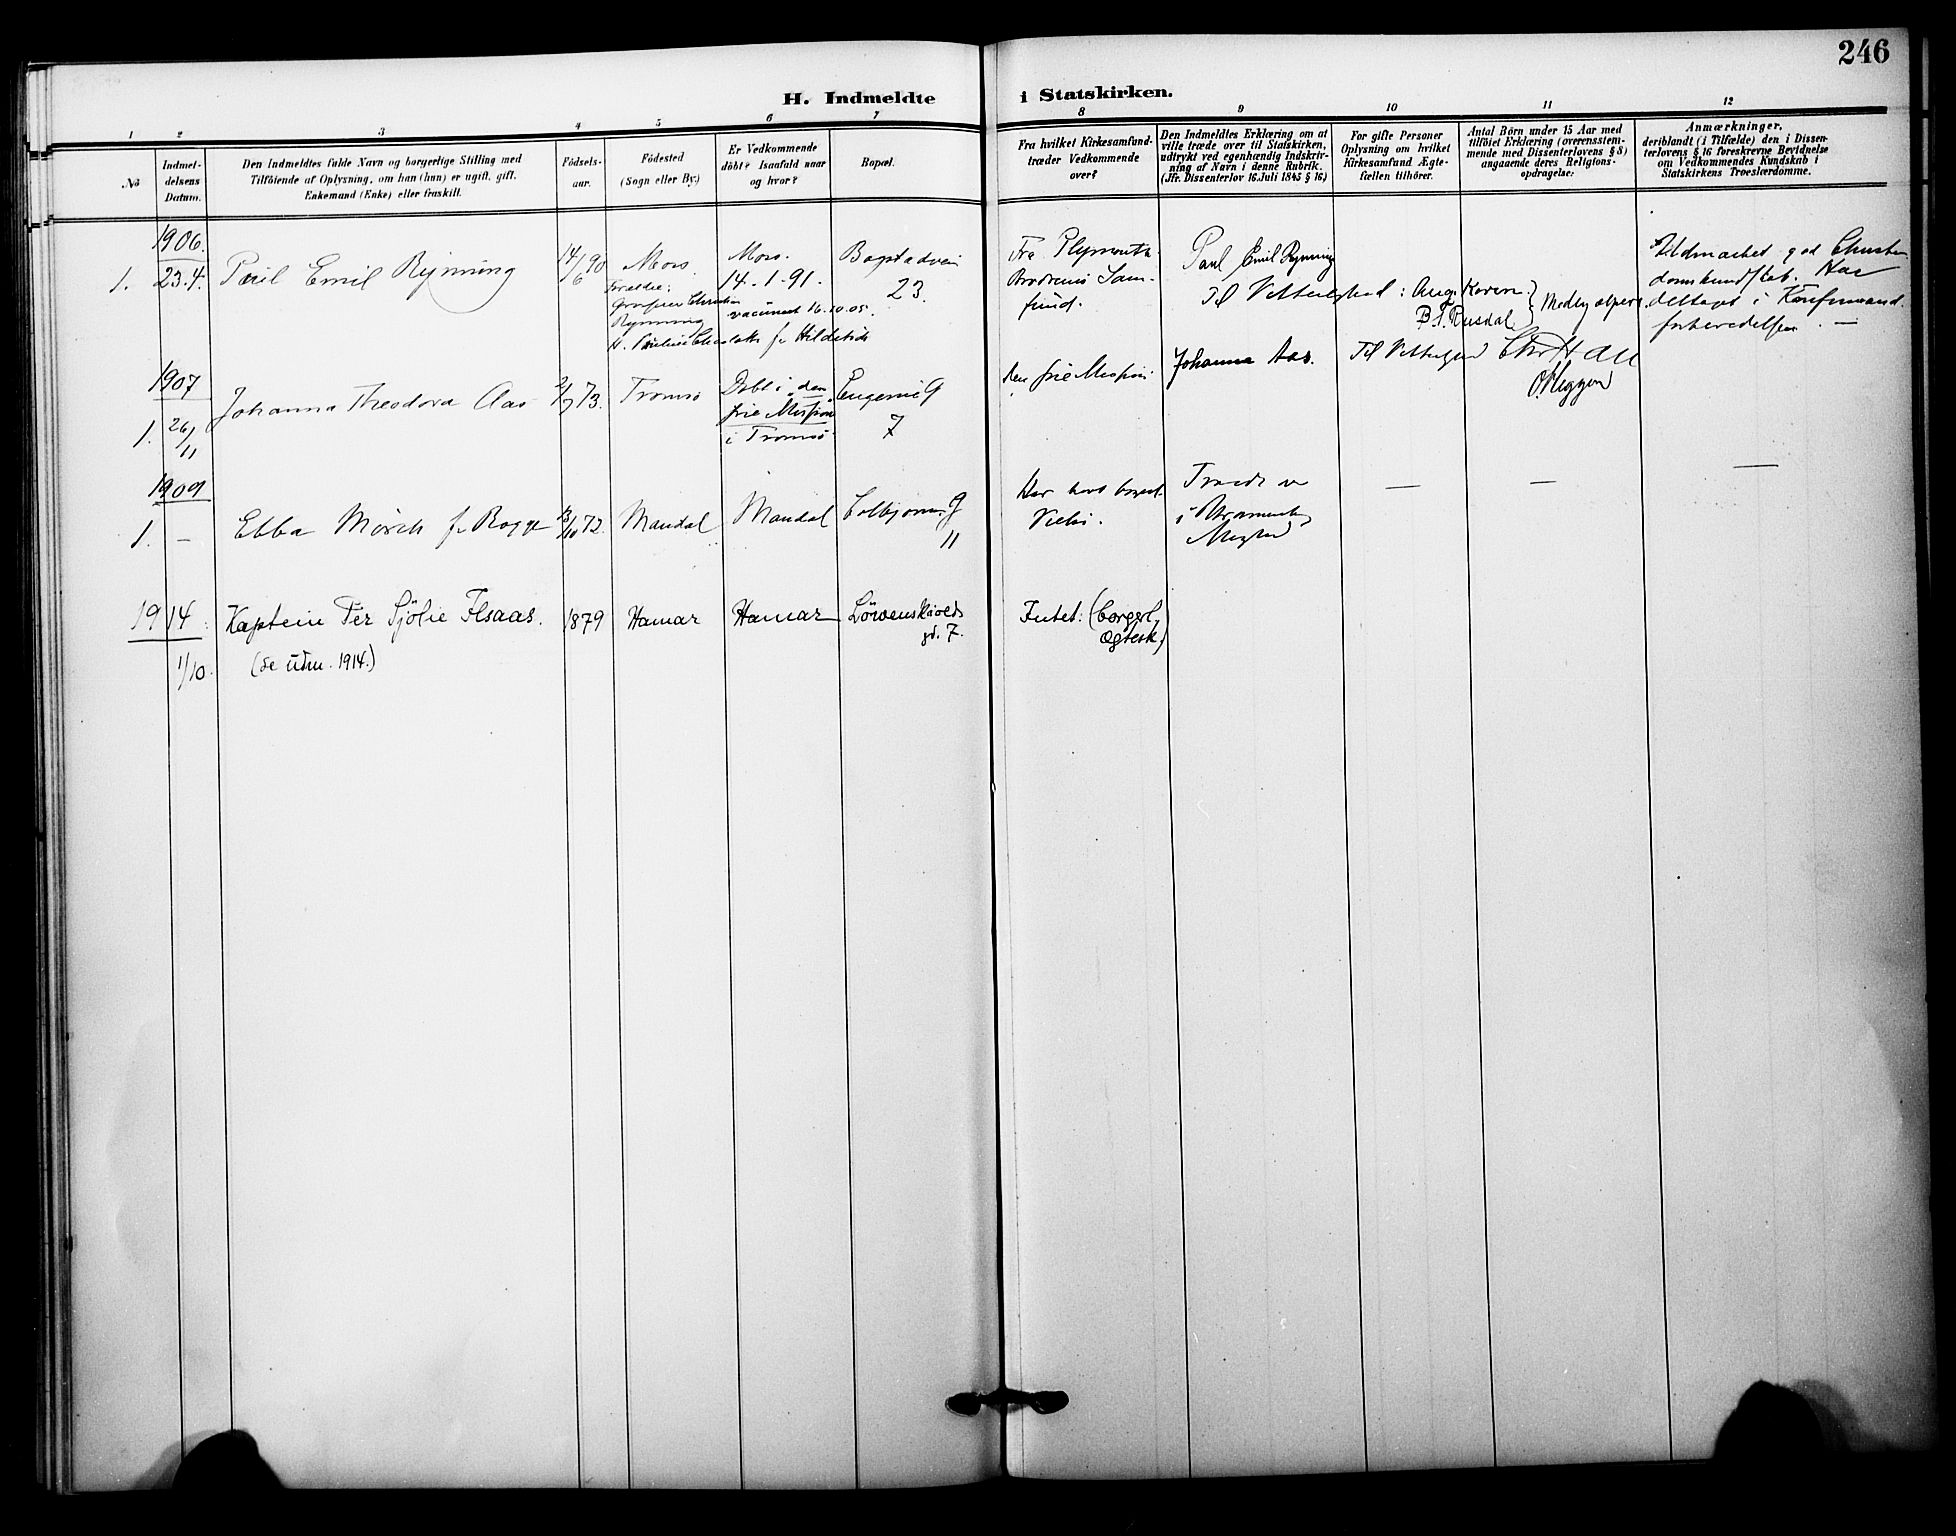 246
H. Indmeldte i Statskirken.
1 2 3 4 5 6 7 8 9 10 11 12
No
Indmel-
delsens
Datum.
Den Indmeldtes fulde Navn og borgerlige Stilling med
Tilföiende af Oplysning, om han (hun) er ugift, gift,
Enkemand (Enke) eller fraskilt.
Födsels-
aar.
Födested
(Sogn eller By.)
Er Vedkommende
döbt? Isaafald naar
og hvor?
Bopæl.
Fra hvilket Kirkesamfund
træder Vedkommende
over?
Den Indmeldtes Erklæring om at
ville træde over til Statskirken,
udtrykt ved egenhændig Indskriv-
ning af Navn i denne Rubrik.
(Jfr. Dissenterlov 16. Juli 1845 § 16)
For gifte Personer
Oplysning om hvilket
Kirkesamfund Ægte-
fællen tilhörer.
Antal Börn under 15 Aar med
tilföiet Erklæring (overensstem-
mende med Dissenterlovens § 8)
angaaende deres Religions-
opdragelse:
Anmærkninger,
deriblandt (i Tilfælde) den i Dissen-
terlovens § 16 foreskrevne Bevidnelse
om Vedkommendes Kundskab i
Statskirkens Troeslærdomme.
1906.
1. 23.4. Paul Emil Rynning
14/6 90
Moss.
Forældre:
Christian
Rynning
Moss.
14.1.91.
vaccineret 16.10.05.
23.
Fra Plymouth
Brødrenes Sam-
fund.
Paul Emil Rynning
Til Vitterlighed: Aug. Koren
B. T. Rusdal
Udmærket god Christen
domskundskab. Har
deltaget i Konfirmand
forberedelsen. —
1907
1. 26/11
Johanna Theodora Aas
73.
Tromsö
Döbt i den
frie Mission
i Tromsö.
Eugenie G
7
den frie Mission
Johanna Aas.
Til Vitterlighed
O. Heggen
1909
1. —
Ebba Mörch f. Rogge
13/10 72.
Mandal
Mandal
Colbjörns. G
11
Har
i
— — —
1914
1/10.
Kaptein Per Sjölie Flsaas.
(se udm. 1914.)
1879
Hamar
Hamar
Löwenskiolds
gd. 7.
Intet: (borgerl.
Ægtesk.)